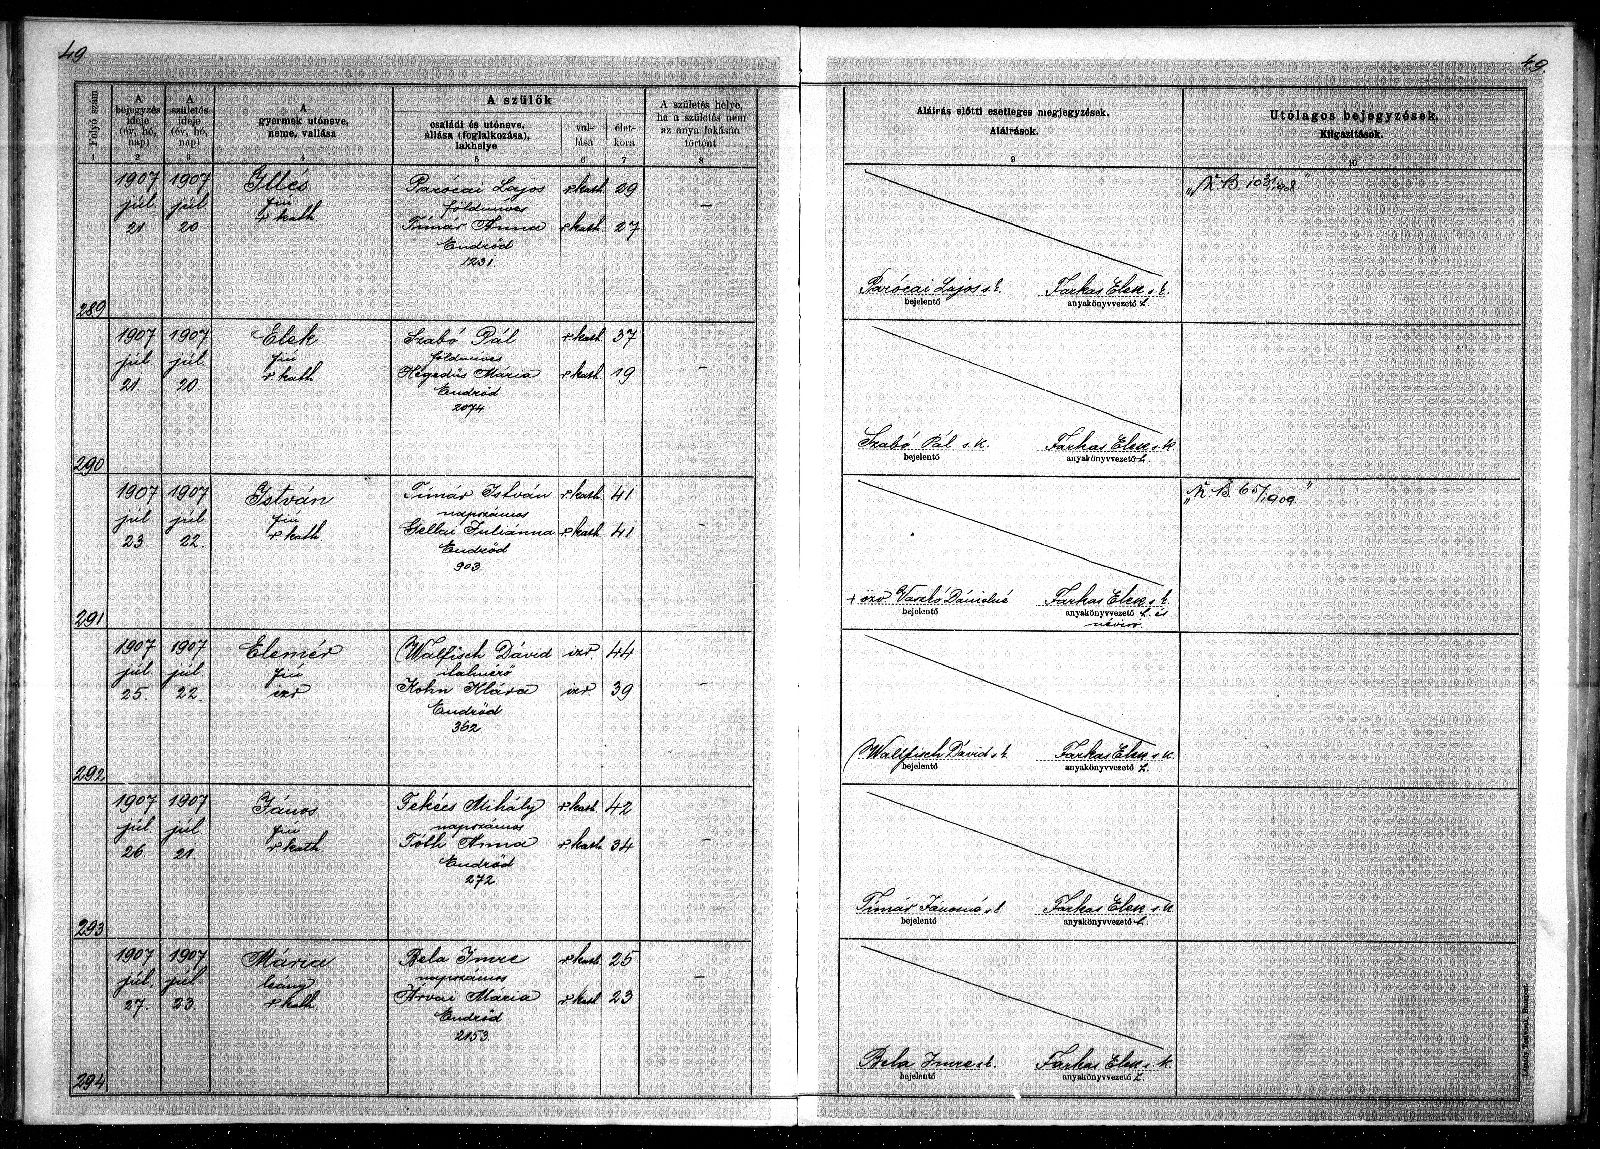 49
49.
Folyó szám
A bejegyzés ideje (év, hó, nap)
A születés ideje (év, hó, nap)
A gyermek utóneve, neme, vallása
A szülők
családi és utóneve, állása (foglalkozása), lakhelye
vallása
életkora
A születés helye, ha a születés nem az anya lakásán történt
Aláírás előtti esetleges megjegyzések.
Aláírások.
Utólagos bejegyzések.
Kiigazítások.
1 2 3 4 5 6 7 8 9 10
1907 1907 Illés Parócai Lajos r. kath. 29
júl júl fiú földmíves
21 20 r kath Tímár Anna r. kath. 27
Endrőd
1231.
289
Parócai Lajos s. k. Farkas Elek s. k.
bejelentő anyakönyvvezető h.
1907 1907 Elek Szabó Pál r. kath. 37
júl júl fiú földmíves
21 20 r. kath Hegedűs Mária r. kath. 19
Endrőd
2074
290
Szabó Pál s. k. Farkas Elek s. k.
bejelentő anyakönyvvezető h.
1907 1907 István Tímár István r. kath. 41
júl júl fiú napszámos
23 22. r kath Gellai Juliánna r. kath. 41
Endrőd
903
291
"N. B. 65/1909."
+ özv Vaszkó Dánielné Farkas Elek s. k.
bejelentő anyakönyvvezető h. és
névíró
1907 1907 Elemér Walfisch Dávid izr. 44
júl júl fiú italmérő
25. 22. izr Kohn Klára izr 39
Endrőd
362
292
Walfisch Dávid s. k. Farkas Elek s. k.
bejelentő anyakönyvvezető h.
1907 1907 János Tekées Mihály r. kath. 42
júl júl fiú napszámos
26 21. r kath Tóth Anna r. kath. 34
Endrőd
272
293
Tímár Jánosné s. k. Farkas Elek s. k.
bejelentő anyakönyvvezető h.
1907 1907 Mária Bela Imre r. kath. 25
júl. júl leány napszámos
27. 23. r kath Arvai Mária r. kath. 23
Endrőd
2153.
294
Bela Imre s. k. Farkas Elek s. k.
bejelentő anyakönyvvezető h.